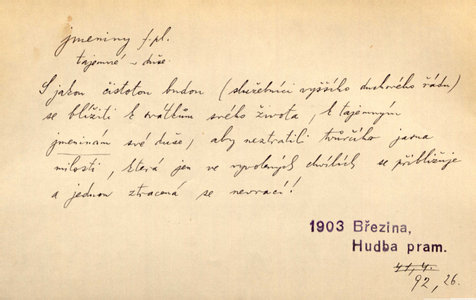 jmeniny f. pl.
tajemné ~ duše.
S jakou čistotou budou (služebníci vyššího duchového řádu)
se blížiti k svátkům svého života, k tajemným
jmeninám své duše, aby neztratili tvůrčího jasna
milosti, která jen ve vyvolených chvílích se přibližuje
a jednou ztracená se nevrací!
1903 Březina,
Hudba pram.
92, 26.